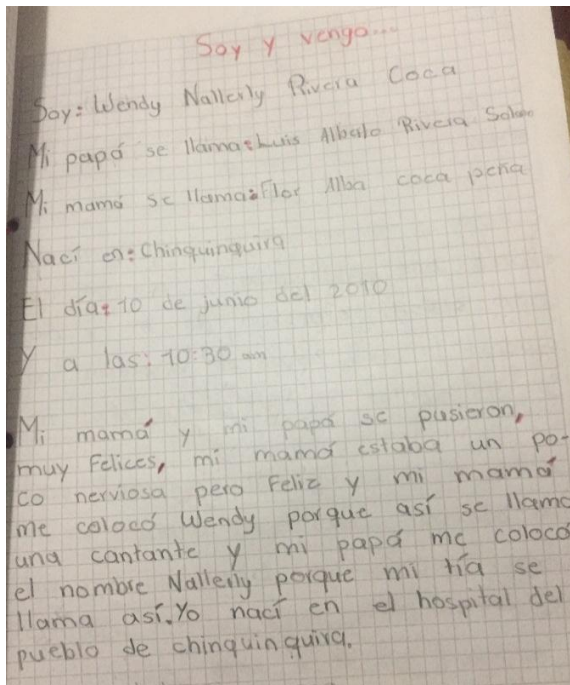 Soy y vengo...
Soy: Wendy Nallerly Rivera Coca
Mi papá se llama: Luis Albelo Rivera
Mi mamá se llama: Flor Alba coca peña
Nací en: Chinquinquira
El día: 10 de junio del 2010
Y a las: 10:30 am
Mi mamá y mi papá se pusieron,
muy Felices, mi mamá estaba un po-
co nerviosa pero Feliz y mi mamá
me colocó Wendy porque así se llama
una cantante y mi papá me colocó
el nombre Nallerly porque mi tía se
llama así. Yo nací en el hospital del
pueblo de chinquinquira.